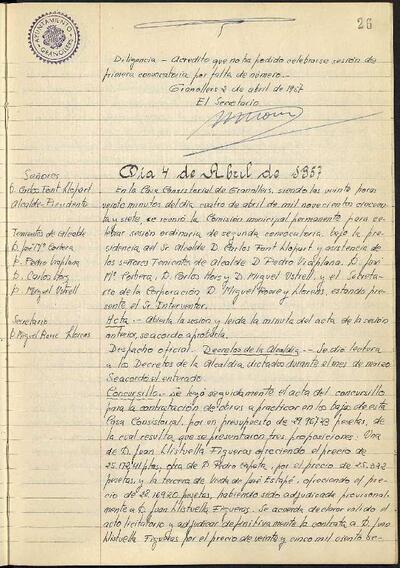 26
AYUNTAMIENTO
GRANOLLERS
Diligencia.- Acredito que no ha podido celebrarse sesión de
primera convocatoria por falta de número.-
Granollers 2 de abril de 1957
El Secretario
Día 4 de Abril de 1957
Señores
D. Carlos Font Llopart
Alcalde-Presidente
Tenientes de Alcalde
D. José Mª Corbera
D. Pedro Viaplana
D. Carlos Hors
D. Miguel Ustrell
Secretario
D. Miguel Roure Llorens
En la Casa Consistorial de Granollers, siendo las veinte horas
veinte minutos del día cuatro de abril de mil novecientos cincuen
ta y siete, se reunió la Comisión municipal permanente para ce-
lebrar sesión ordinaria de segunda convocatoria, bajo la pre-
sidencia del Sr. Alcalde D. Carlos Font Llopart y asistencia de
los señores Tenientes de Alcalde D. Pedro Viaplana. D. José
Mª Corbera, D. Carlos Hors y D. Miguel Ustrell, y el Secreta-
rio de la Corporación D. Miguel Roure y Llorens, estando pre-
sente el Sr. Interventor.
Acta.- Abierta la sesión y leída la minuta del acta de la sesión
anterior, se acordó aprobarla.
Despacho oficial. Decretos de la Alcaldía.- Se dió lectura
a los Decretos de la Alcaldía dictados durante el mes de marzo
Se acordó el enterado.
Concursillo.- Se leyó seguidamente el acta del concursillo
para la contratación de obras a practicar en los bajos de esta
Casa Consistorial, por en presupuesto de 29.967'23 pesetas, de
la cual resulta que se presentaron tres proposiciones: Una
de D. Juan Llistuella Figueras ofreciendo el precio de
pesetas, otra de D. Pedro Zapata, por el precio de
pesetas, y la tercera de Viuda de José Estapé, ofreciendo el pre-
cio de pesetas, habiendo sido adjudicada provisional-
mente a D. Juan Llistuella Figueras. Se acuerda declarar válido el
acto licitatorio y adjudicar definitivamente la contrata a D. Juan
Llistuella Figueras por el precio de veinte y cinco mil ciento se-